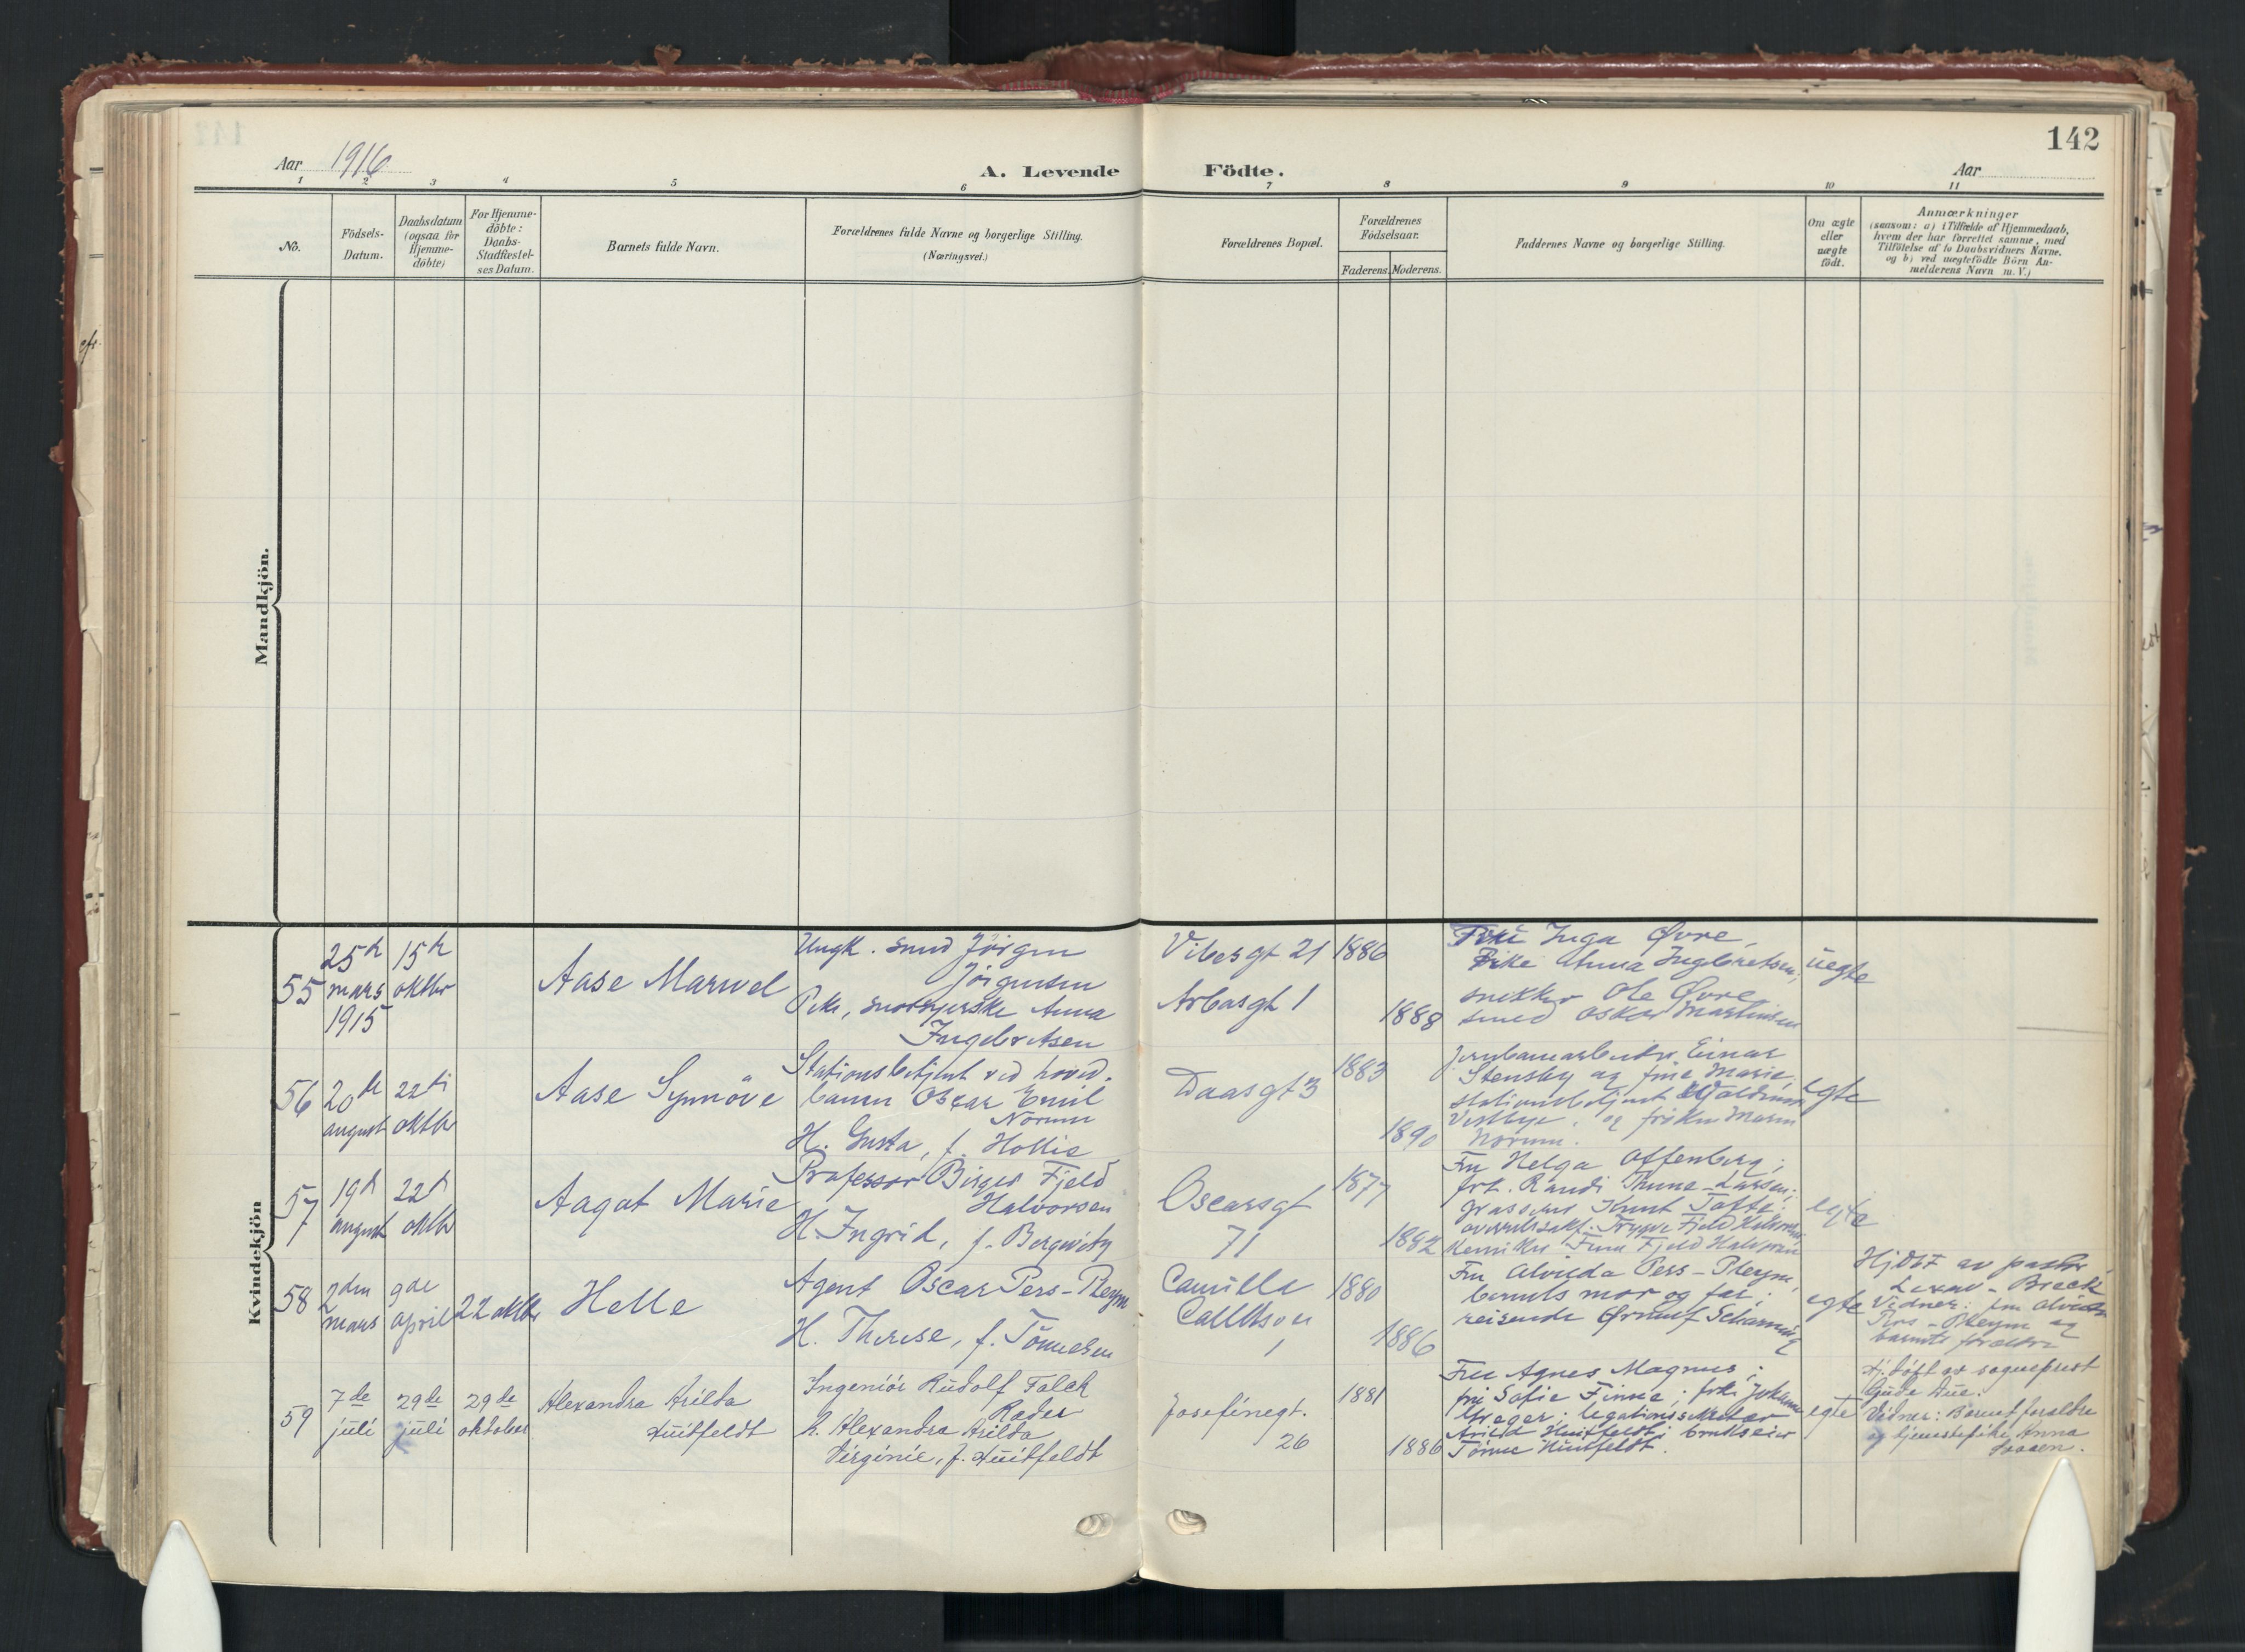 142
Aar 1916
A. Levende Födte.
Aar
1 2 3 4 5 6 7 8 9 10 11
No.
Födsels-
Datum.
Daabsdatum
(ogsaa for
Hjemme-
döbte)
For Hjemme-
döbte:
Daabs-
Stadfæstel-
ses Datum.
Barnets fulde Navn.
Forældrenes fulde Navne og borgerlige Stilling.
(Næringsvei.)
Forældrenes Bopæl.
Forældrenes
Födselsaar.
Faderens. Moderens.
Faddernes Navne og borgerlige Stilling.
Om ægte
eller
uægte
födt.
Anmærkninger
(saasom: a) i Tilfælde af Hjemmedaab,
hvem der har forrettet samme, med
Tilföielse af to Daabsvidners Navne,
og b) ved uægtefödte Börn An-
melderens Navn m. V.)
Mandkjön.
Kvindekjön
55
25
mars
1915
15
oktbr
Aase Marvel
Ungk. smed Jörgen
Jörgensen
Pike, Anna
Ingebretsen
Vibesgt 21
Arbosgt 1
1886
1888
Inga Øvre,
Pike Anna Ingebretsen,
snekker Ole Øvre
smed Oskar Martinsen
uegte
56
20de
august
22
oktbr
Aase Synnöve
Stationsbetjent ved hoved-
banen Oscar Emil
Norum
H. Gusta, f. Hollie
Daasgt 3
1883
1890
Jernbanearbeider Einar
Stensby og frue Marie;
stationsbetjent Waldemar
Vestbye, og frøken Maren
Norum.
egte
57
19
august
22
oktbr
Aagot Marie
Professor Birger Fjeld
Halvorsen
H. Ingrid, f. Bergwitz
Oscarsgt
71
1877
1882
Fru Helga Offenberg;
frk. Randi Thune-Larsen;
Knut Tofte;
Trygve Fjeld Halvorsen
Finn Fjeld Halvorsen
egte
58
2den
mars
9de
april
22 oktbr
Helle
Agent Oscar Pers-Pleym
H. Therese, f. Tönnesen
Camilla
Colletts
1
1880
1886
Fru Alvilda Pers-Pleym,
barnets mor og far;
reisende Ørnulf Schanning
egte
Hj.döbt av pastor
Lexau-Breck
Vidner: fru Alvilda
Pers-Pleym og
barnets forældre
59
7de
juli
29de
juli
29de
oktober
Alexandra Arilda
Huitfeldt
Ingeniör Rudolf Falck
Rader
H. Alexandra Arilda
Virginie, f. Huitfeldt
Josefinegt.
26
1881
1886
Fru Agnes Magnus;
fru Sofie Finne; frk. Johanne
Krager; legationssekretær
Arild Huitfeldt; brukseier
Tönne Huitfeldt.
egte
Hj.döpt av sogneprest
Gude Due.
Vidner: Barnets foreldre
og tjenestepike Anna